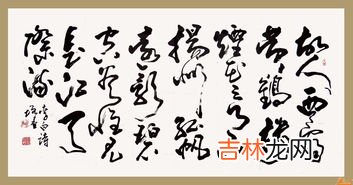 故人西辞
黄鶴楼
煙花三月下
揚州孤帆
远影碧
空尽唯见
长江天
際流
李白诗
吉林龙网